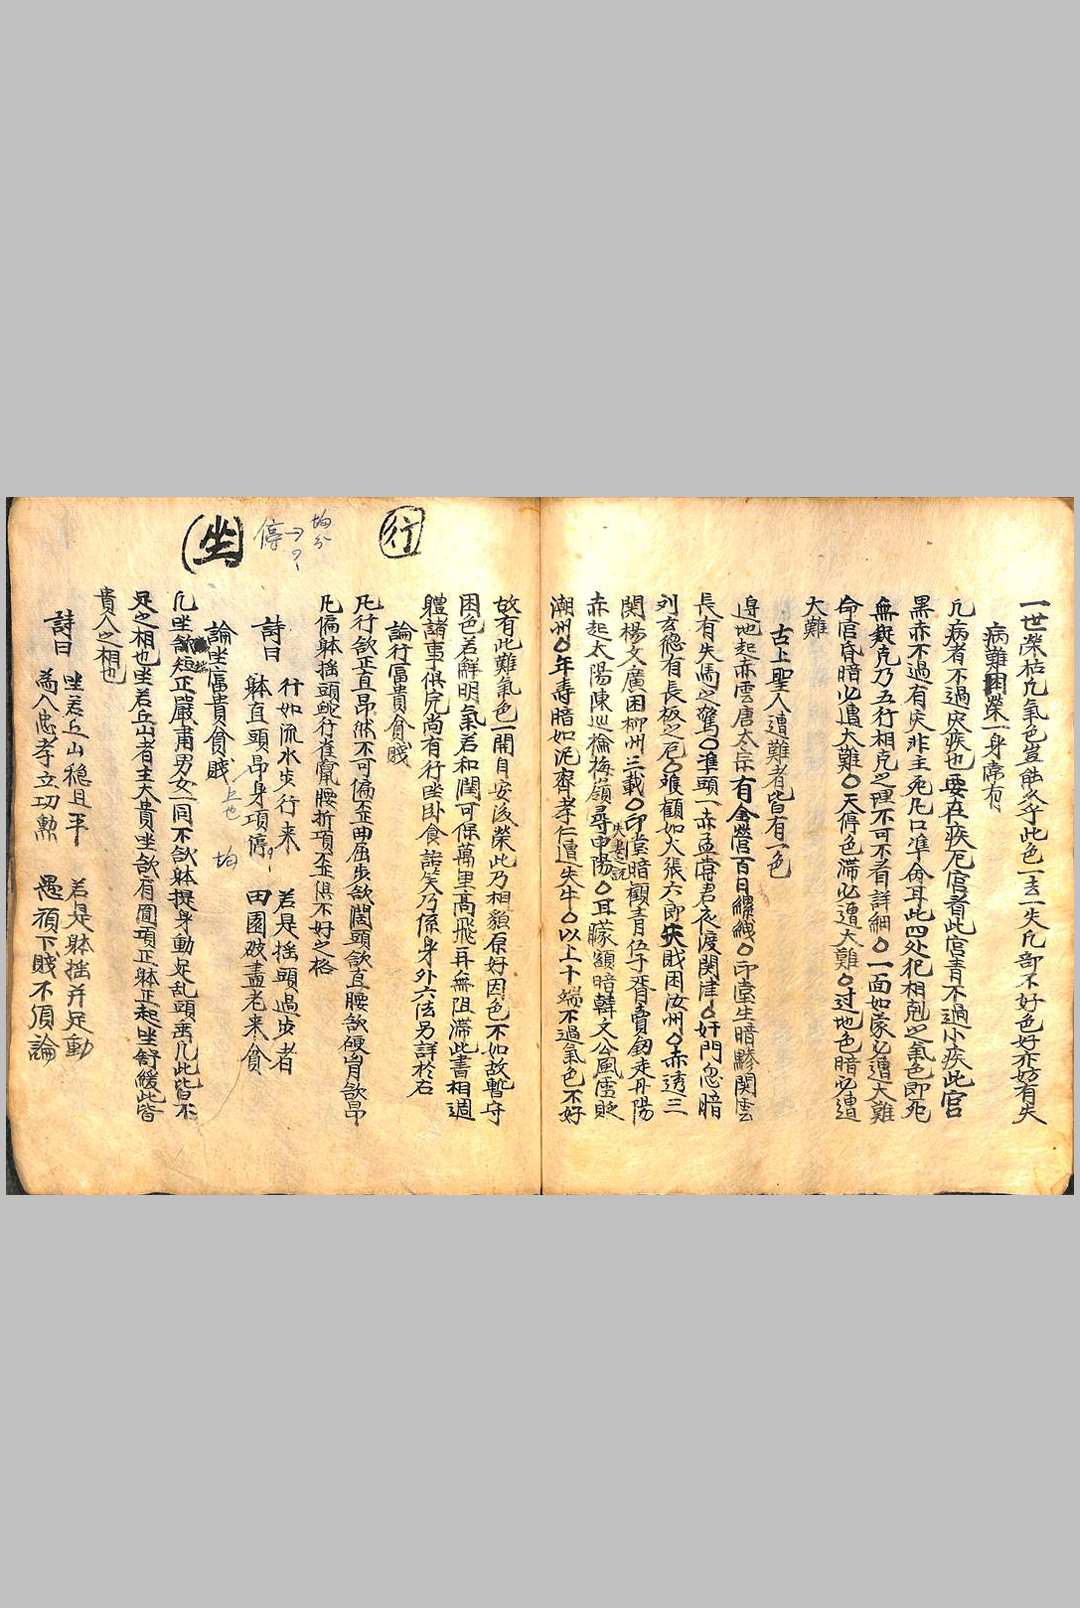 一世榮枯凡氣色豈蝕久乎此色一去一失凡部不好色好亦妨有失
病難困榮一身常有
凡病者不過灾疾也要在疾厄宮看此宮青不過小疾此宮
黑赤不過有灾非主死凡口準命耳此四处犯相剋之氣色即死
無剋克乃五行相克之理不可不看詳細○一面如蒙必遭大難
命宮昏暗必遭大難○天停色滯必遭大難○过地色暗必遭
大難
古上聖人遭難者皆有一色
邉地起赤雲唐太宗有金營百日縲絏○印堂生暗黪関雲
長有失馬之驚○準頭一赤孟嘗君夜渡関津○奸門忽暗
刘玄德有長板之厄○喉顴如火張六郎失戝困汝州○赤透三
関楊文廣困柳州三載○印堂暗顴青伍子胥賣劒走丹陽
赤起太陽陳巡檢梅嶺尋申陽失妻之說○耳朦額暗韓文公風雪貶
潮州○年壽暗如泥齊孝仁遭失牛○以上十端不過氣色不好
故有此難氣色一開自安後榮此乃相貌原好因色不如故暫守
困色若鮮明氣若和潤可保萬里高飛再無阻滞此書相週
體諸事俱完尚有行坐卧食諾笑乃係身外六法另詳於右
行
論行富貴貧賤
凡行欲正直昻然不可偏歪曲屈步欲闊頭欲直腰欲硬胷欲昂
凡偏躰摇頭蛇行雀竄腰折項歪俱不好之格
詩曰
行如流水步行来 若是摇頭過步者
躰直頭昻身項停 田園破盡老来貧
停
坐
論坐富貴貧賤
上也
均
凡坐欲短正嚴肅男女一同不欲躰提身動足乱頭垂凡此皆不
足之相也坐若丘山者主大貴坐欲肩圓項正躰正起坐舒緩此皆
貴人之相也
詩曰
坐若丘山穏且平 若是躰摇并足動
為人忠孝立功勲 愚頑下賤不須論